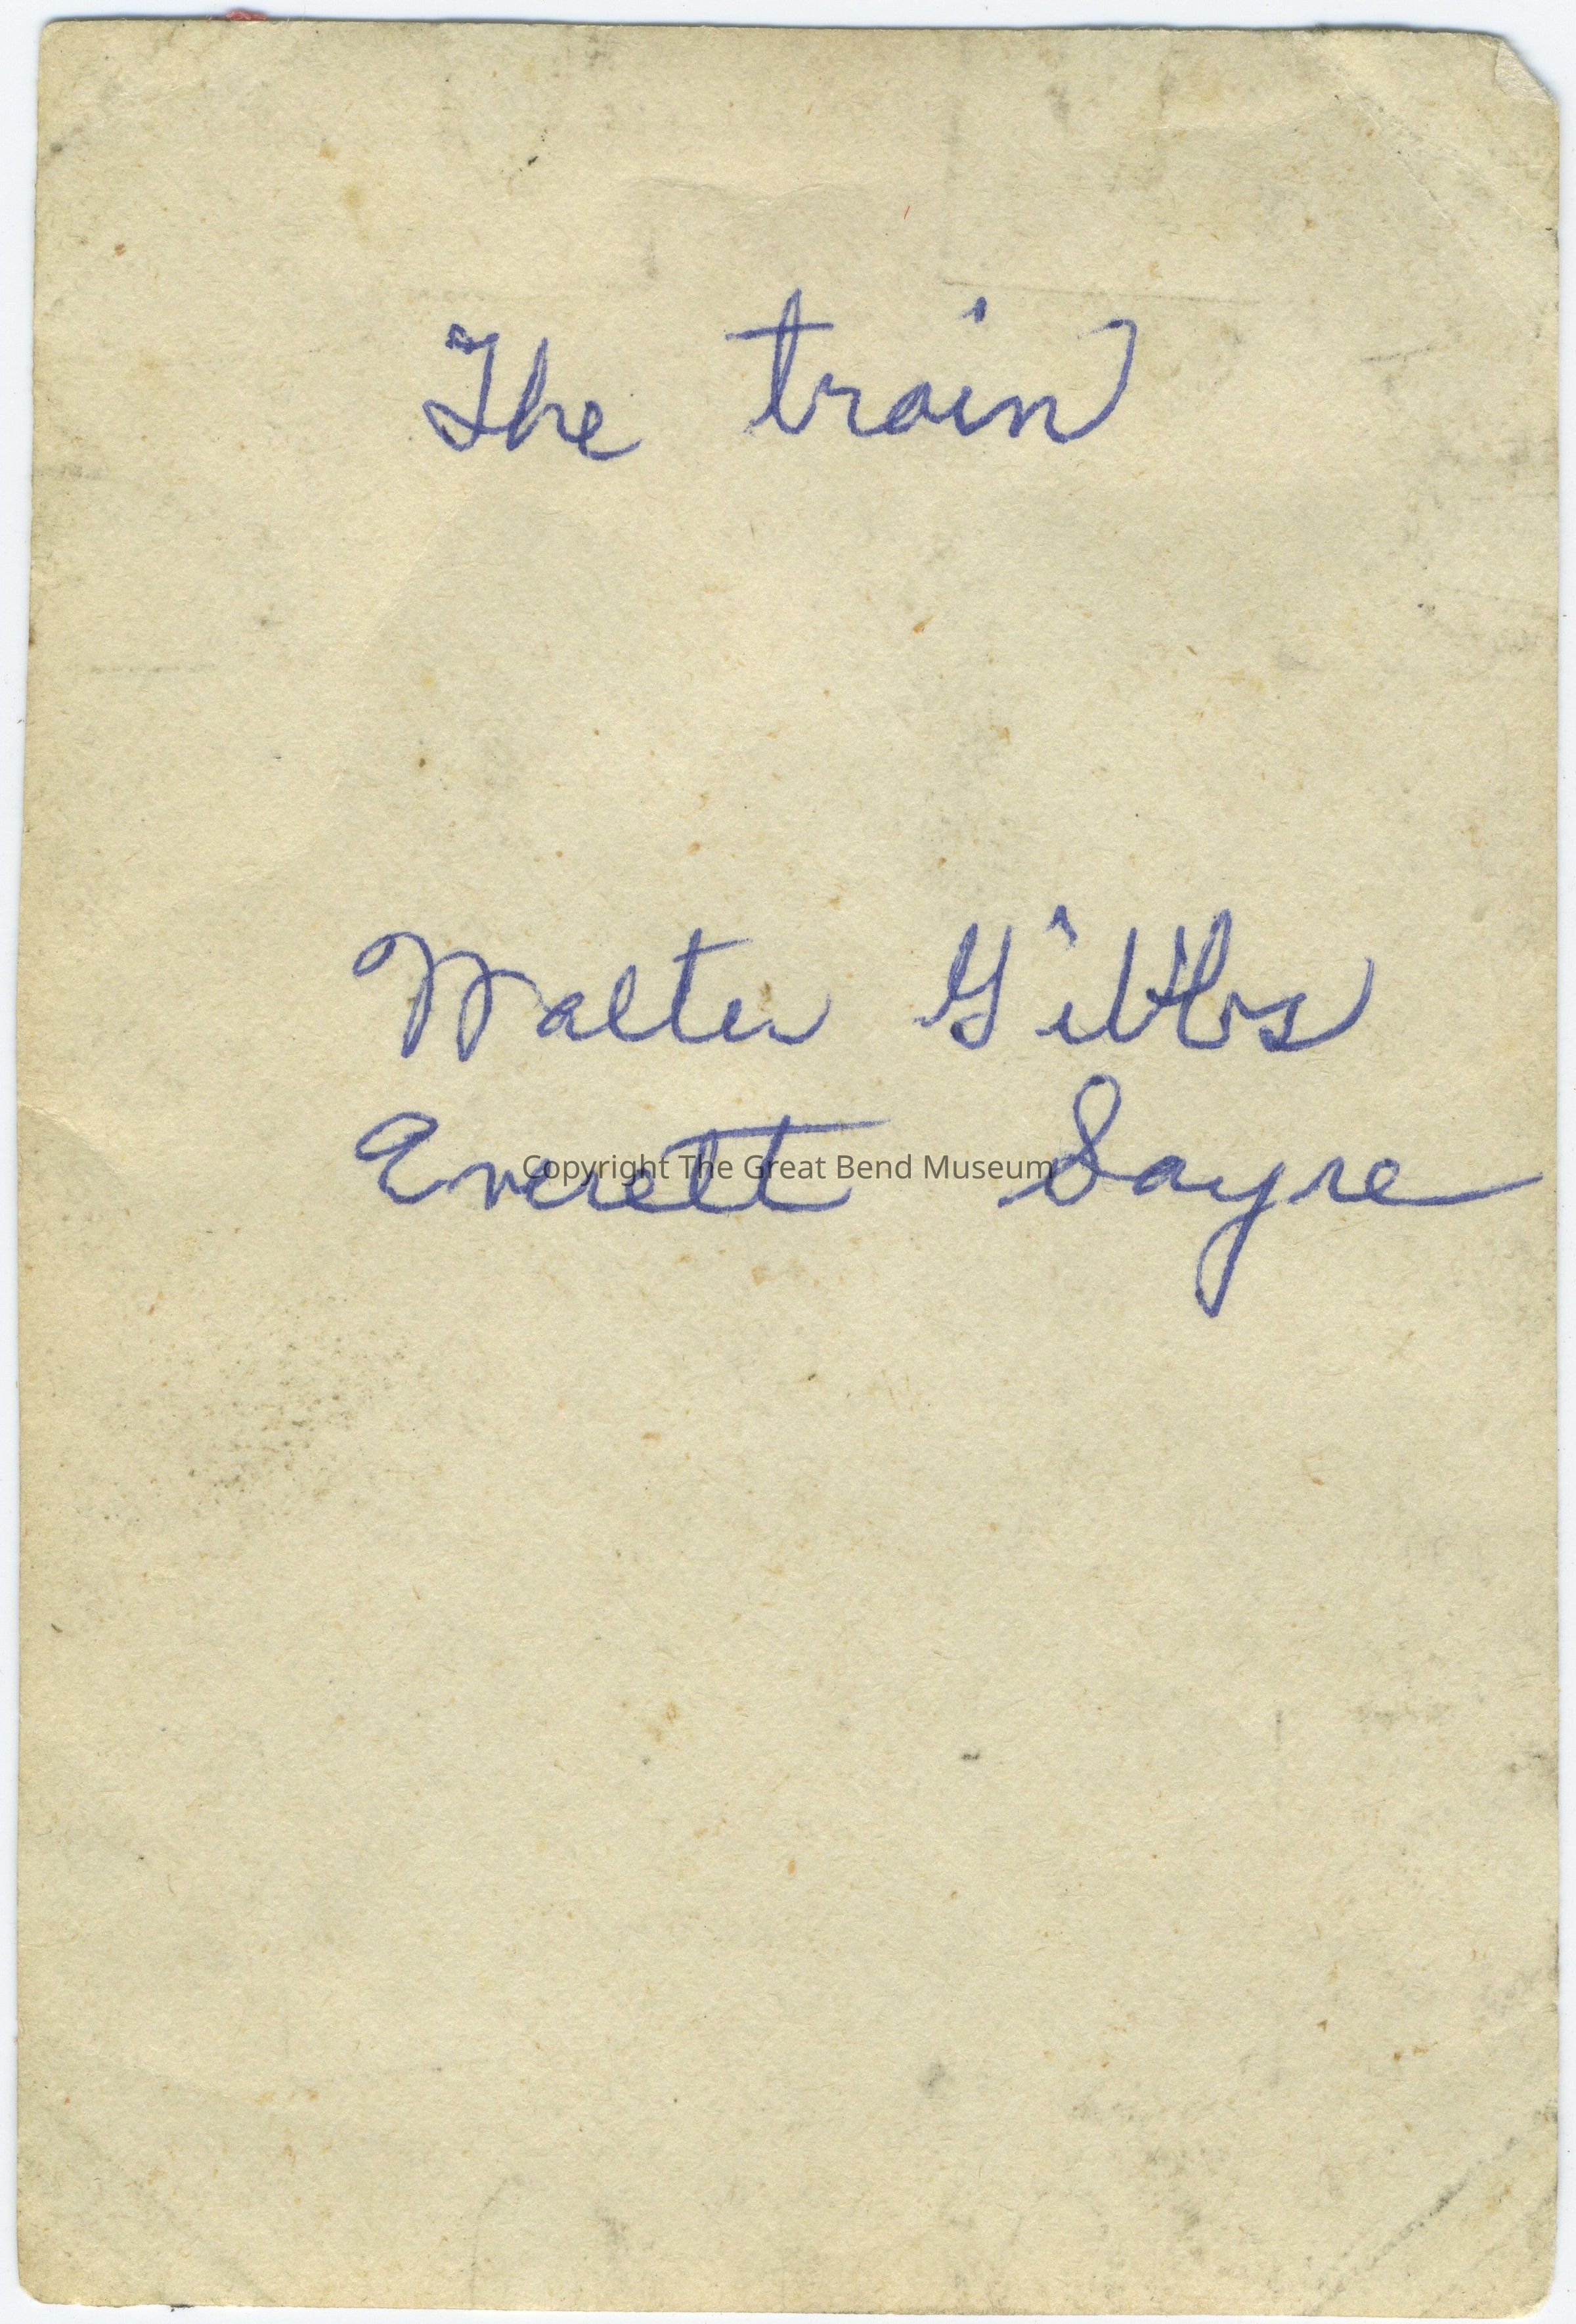 The train
Walter Gibbs
Everett Sayre
Copyright The Great Bend Museum